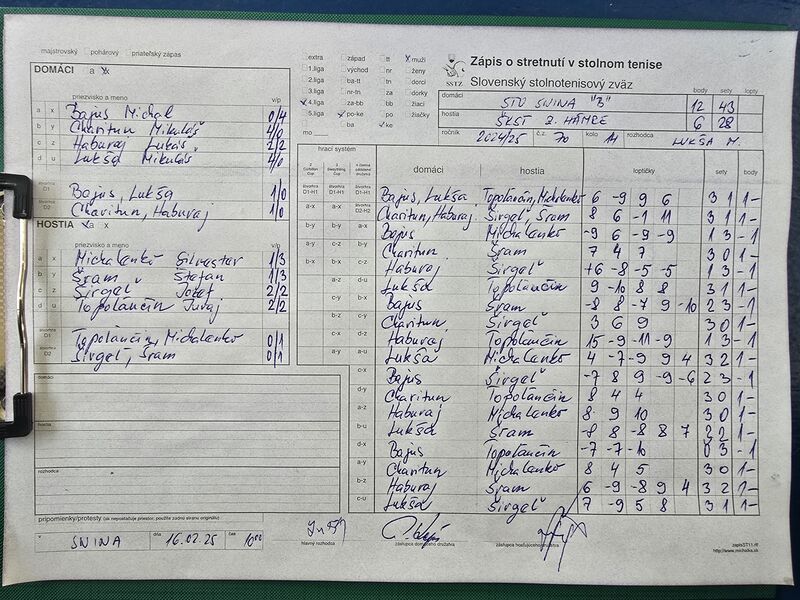 majstrovský pohárový priateľský zápas
DOMÁCI a x
priezvisko a meno v/p
a x Bajus Michal 0/4
b y Charitun Mikuláš 4/0
c z Haburaj Lukáš 2/2
d u Lukša Mikuláš 4/0
štvorhra D1 Bajus, Lukša 1/0
štvorhra D2 Charitun, Haburaj 1/0
HOSTIA a x
priezvisko a meno v/p
a x Michalenko Silvester 1/3
b y Šram Štefan 1/3
c z Širgeľ Jozef 2/2
d u Topolančin Juraj 2/2
štvorhra D1 Topolančin, Michalenko 0/1
štvorhra D2 Širgeľ, Šram 0/1
domáci
hostia
rozhodca
pripomienky/protesty (ak nepostačuje priestor, použite zadnú stranu originálu)
v SNINA dňa 16.02.25 čas 10:00
extra západ tt X muži
1.liga východ nr ženy
2.liga ba-tt tn dorci
3.liga nr-tn za dorky
4.liga za-bb bb žiaci
5.liga po-ke po žiačky
mo ba ke
SSTZ
Zápis o stretnutí v stolnom tenise
Slovenský stolnotenisový zväz
body sety lopty
domáci STO SNINA "B" 12 43
hostia ŠKST 2. HÁMRE 6 28
ročník 2024/25 č.z. 70 kolo 14 rozhodca LUKŠA M.
hrací systém
domáci hostia loptičky sety body
Bajus, Lukša Topolančin, Michalenko 6 -9 9 6 3 1 1-
Charitun, Haburaj Širgeľ Šram 8 6 -1 11 3 1 1-
Bajus Michalenko -9 6 -9 -9 1 3 -1
Charitun Šram 7 4 7 3 0 1-
Haburaj Širgeľ +6 -8 -5 -5 1 3 -1
Lukša Topolančin 9 -10 8 8 3 1 1-
Bajus Šram -8 8 -7 9 -10 2 3 -1
Charitun Širgeľ 3 6 9 3 0 1-
Haburaj Topolančin 15 -9 -11 -9 1 3 -1
Lukša Michalenko 4 -7 -9 9 4 3 2 1-
Bajus Širgeľ -7 8 9 -9 -6 2 3 -1
Charitun Topolančin 8 4 4 3 0 1-
Haburaj Michalenko 8 9 10 3 0 1-
Lukša Šram -8 8 -8 8 7 2 1-
Bajus Topolančin -7 -7 -10 0 3 -1
Charitun Michalenko 8 4 5 3 0 1-
Haburaj Šram 6 -9 -8 9 4 3 2 1-
Lukša Širgeľ 7 -9 5 8 3 1 1-
hlavný rozhodca
zástupca domáceho družstva
zástupca hosťujúceho družstva
zapisST11.rtf
http://www.michalka.sk